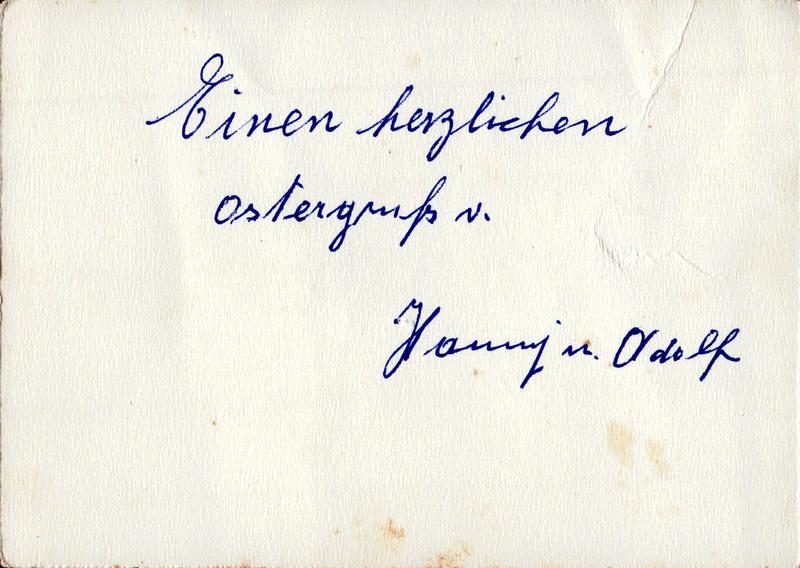 Einen herzlichen
Ostergruß v.
Hanny u. Adolf